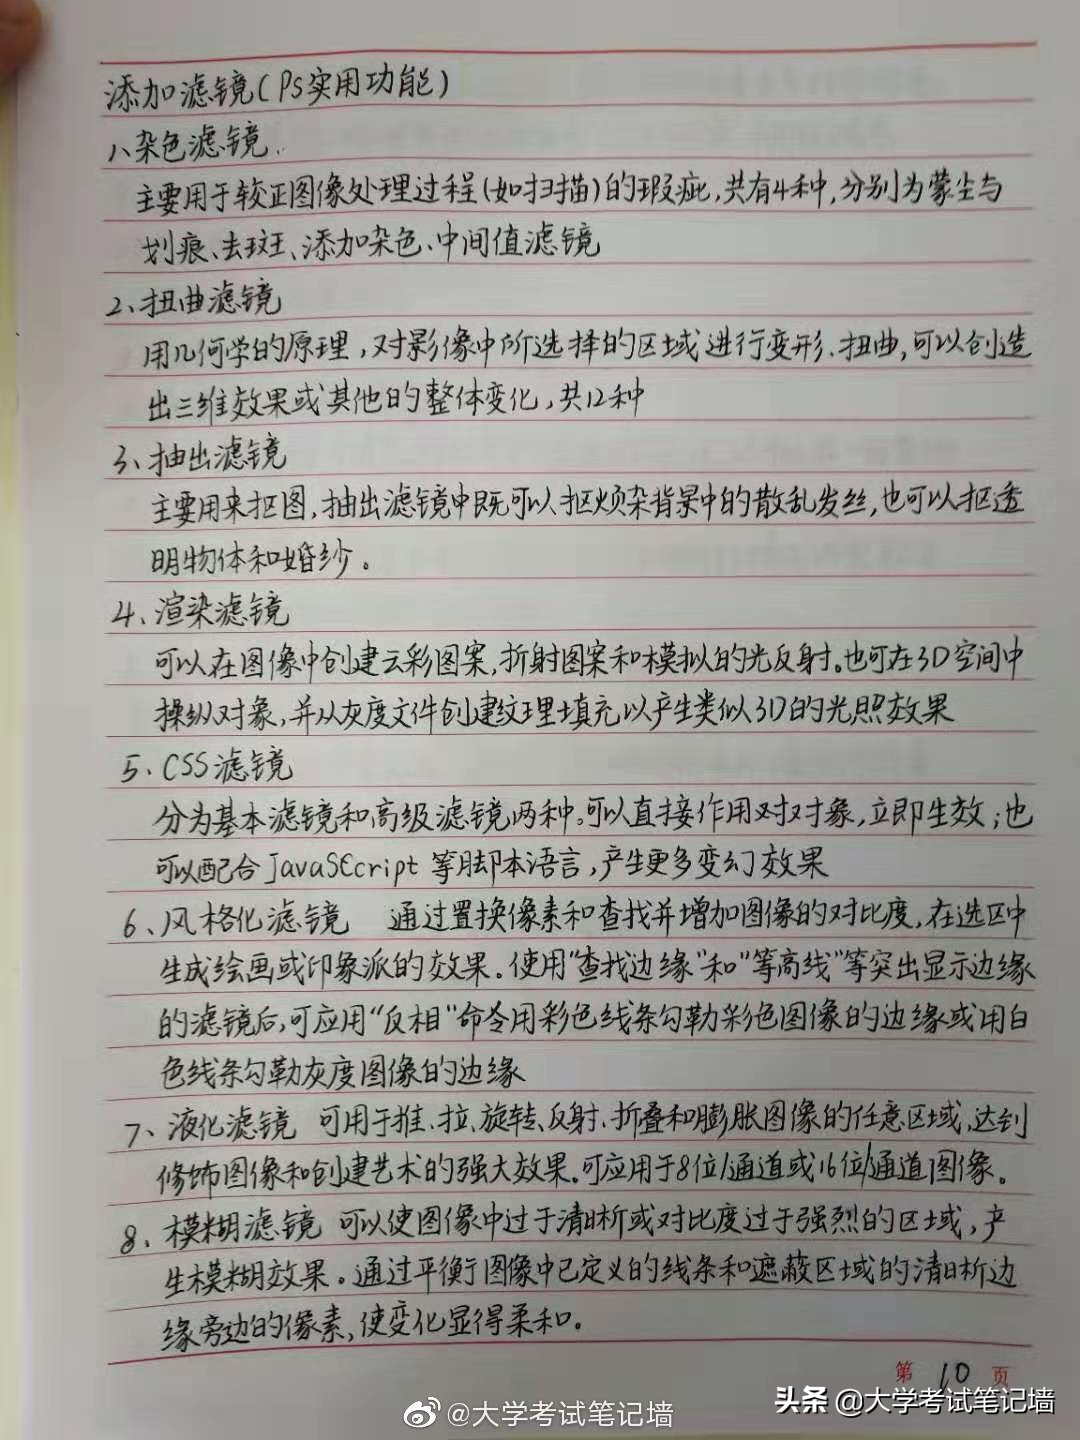 添加滤镜(Ps实用功能)
1、杂色滤镜.
主要用于较正图像处理过程(如扫描)的瑕疵,共有4种,分别为蒙尘与
划痕、去斑、添加杂色、中间值滤镜
2、扭曲滤镜
用几何学的原理,对影像中所选择的区域进行变形、扭曲,可以创造
出三维效果或其他的整体变化,共12种
3、抽出滤镜
主要用来抠图,抽出滤镜中既可以抠烦杂背景中的散乱发丝,也可以抠透
明物体和婚纱。
4、渲染滤镜
可以在图像中创建云彩图案,折射图案和模拟的光反射。也可在3D空间中
操纵对象,并从灰度文件创建纹理填充以产生类似3D的光照效果
5、CSS滤镜
分为基本滤镜和高级滤镜两种。可以直接作用对对象,立即生效;也
可以配合JavaSCcript等脚本语言,产生更多变幻效果
6、风格化滤镜 通过置换像素和查找并增加图像的对比度,在选区中
生成绘画或印象派的效果。使用“查找边缘”和“等高线”等突出显示边缘
的滤镜后,可应用“反相”命令用彩色线条勾勒彩色图像的边缘或用白
色线条勾勒灰度图像的边缘
7、液化滤镜 可用于推、拉、旋转、反射、折叠和膨胀图像的任意区域,达到
修饰图像和创建艺术的强大效果。可应用于8位/通道或16位/通道图像。
8、模糊滤镜 可以使图像中过于清晰或对比度过于强烈的区域,产
生模糊效果。通过平衡图像中已定义的线条和遮蔽区域的清晰边
缘旁边的像素,使变化显得柔和。
第 10 页
@大学考试笔记墙
头条 @大学考试笔记墙